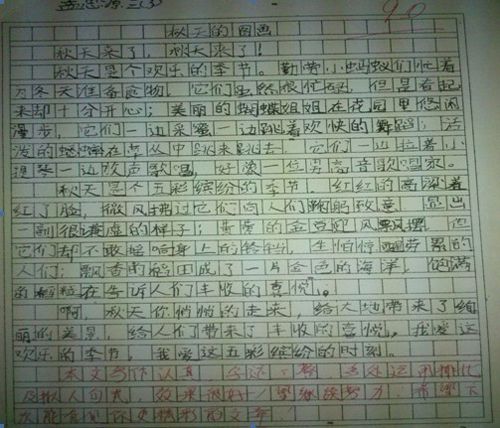 孟思源 三(3) 90
秋天的图画
秋天来了，秋天来了！
秋天是个欢乐的季节。勤劳小蚂蚁们忙着
为冬天准备食物，它们虽然很忙碌，但是看起
来却十分开心；美丽的蝴蝶姐姐在花园里悠闲
漫步，它们一边采蜜一边跳着欢快的舞蹈；活
泼的蟋蟀在草丛中跳来跳去，它们一边拉着小
提琴一边放声歌唱，好像一位男高音歌唱家。
秋天是个五彩缤纷的季节。红红的高粱着
红了脸，微风拂过它们向人们鞠躬致意，显出
一副很谦虚的样子；黄黄的金豆迎风飘摆，但
它们却不敢摇响身上的铃铛，生怕惊醒劳累的
人们；飘香的稻田成了一片金色的海洋，饱满
的颗粒在告诉人们丰收的喜悦。
啊，秋天你悄悄的走来，给大地带来了绚
丽的美景，给人们带来了丰收的喜悦。我爱这
欢乐的季节，我爱这五彩缤纷的时刻。
本文写作认真，多处运用排比
及拟人句式，效果很好！望继续努力，希望下
次能看见你更精彩的文章